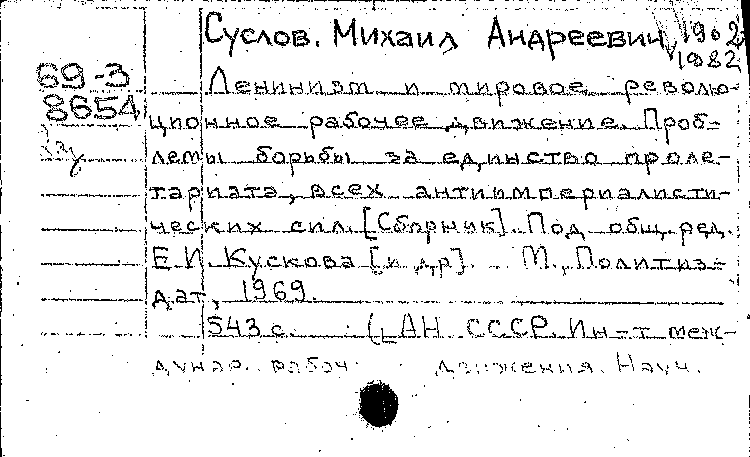 Суслов. Михаил Андреевич, 1902
1982
69-3
8654
Ленинизм и мировое револю-
ционное рабочее движение. Проб-
лемы борьбы за единство проле-
тариата, всех антиимпериалисти-
ческих сил. [Сборник]. Под общ. ред.
Е.И. Кускова [и др]. М., Политиз-
дат, 1969.
543 с. (АН СССР. Ин-т меж-
дунар. рабоч. движения. Науч.